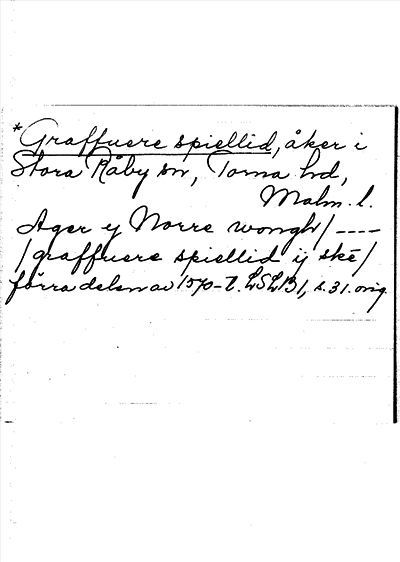 *Graffuere spiellid, åker i
Stora Råby sn, Torna hd,
Malm. l.
Ager y Norre wongh/ ----
/graffuere spiellid ij ske/
förra delen av 1570-t. LSLB1, s. 31. orig.